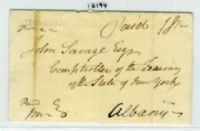 12194
Paid 18¾
John Savage Esqr
Comptroller of the Treasury
of the State of New York
Albany